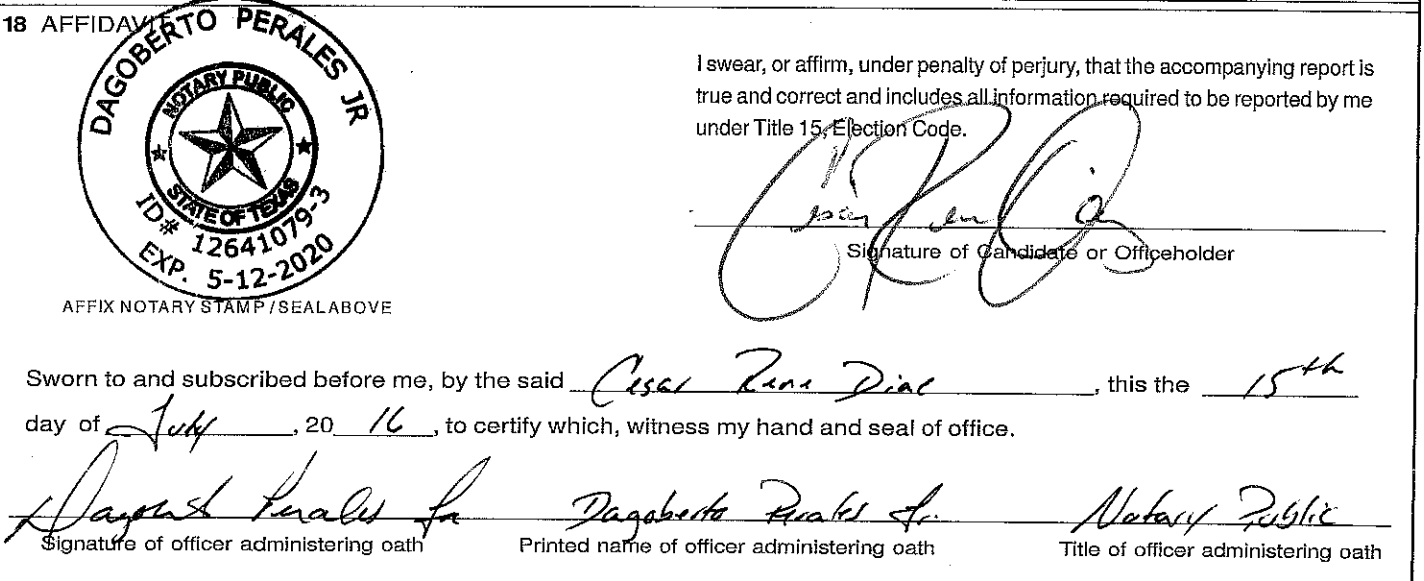 18 AFFIDAVIT
DAGOBERTO PERALES JR
NOTARY PUBLIC
STATE OF TEXAS
ID# 12641079-3
EXP. 5-12-2020
AFFIX NOTARY STAMP / SEAL ABOVE
I swear, or affirm, under penalty of perjury, that the accompanying report is
true and correct and includes all information required to be reported by me
under Title 15, Election Code.
Signature of Candidate or Officeholder
Sworn to and subscribed before me, by the said Cesar Rene Diaz, this the 15th
day of July, 20 16, to certify which, witness my hand and seal of office.
Dagoberto Perales Jr Dagoberto Perales Jr. Notary Public
Signature of officer administering oath Printed name of officer administering oath Title of officer administering oath